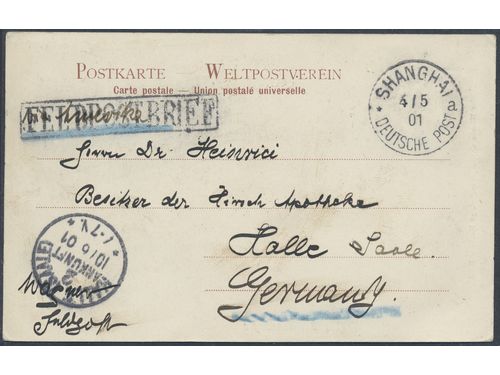 POSTKARTE WELTPOSTVEREIN
Carte postale – Union postale universelle
FELDPOSTBRIEF
via Amerika
SHANGHAI a
4/5
01
DEUTSCHE POST
Herrn Dr. Heinrici
Besitzer der Hirsch Apotheke
Halle Saale
Germany.
10/6 01
Feldpost